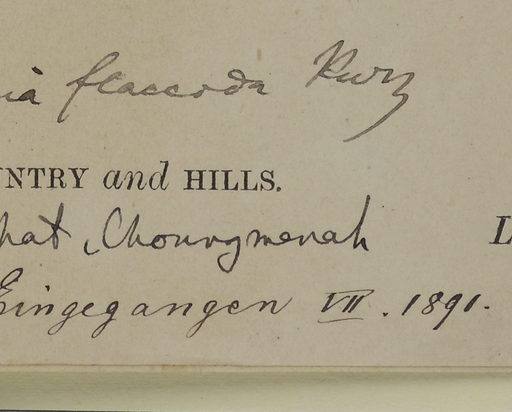 ia flaccida Kurz
UNTRY and HILLS.
hat, Choungmenah L
Eingegangen VII. 1891.